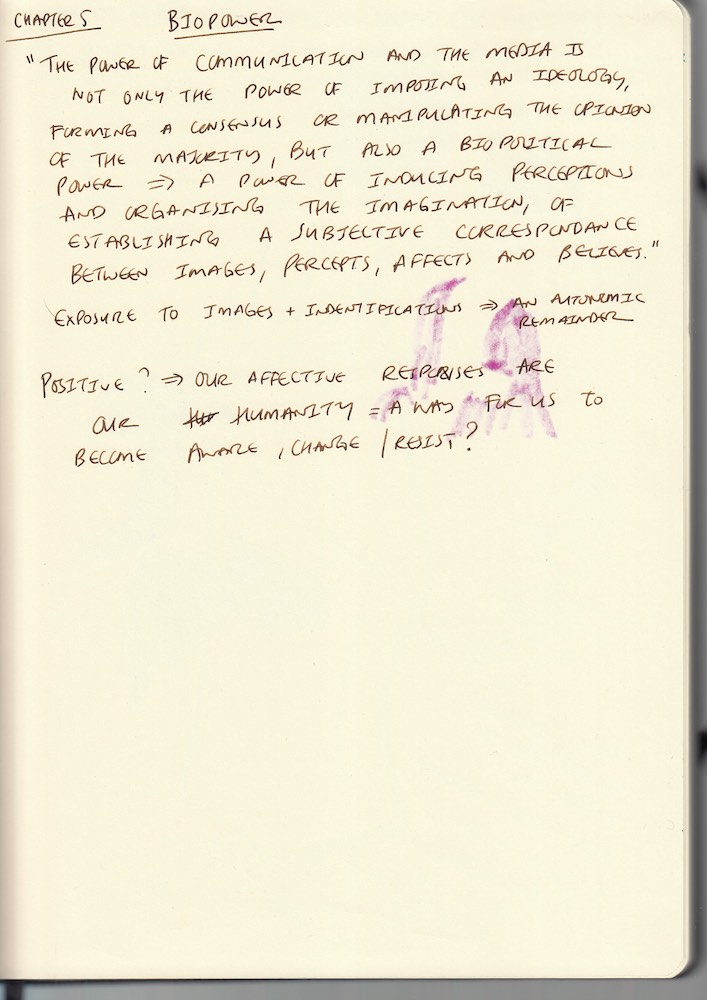 CHAPTER 5 BIOPOWER
"THE POWER OF COMMUNICATION AND THE MEDIA IS
NOT ONLY THE POWER OF IMPOSING AN IDEOLOGY,
FORMING A CONSENSUS OR MANIPULATING THE OPIONION
OF THE MAJORITY, BUT ALSO A BIOPOLITICAL
POWER ⇒ A POWER OF INDUCING PERCEPTIONS
AND ORGANISING THE IMAGINATION, OF
ESTABLISHING A SUBJECTIVE CORRESPONDANCE
BETWEEN IMAGES, PERCEPTS, AFFECTS AND BELIEVES."
EXPOSURE TO IMAGES + INDENTIFICATIONS ⇒ AN AUTONOMIC
REMAINDER
POSITIVE? ⇒ OUR AFFECTIVE RESPONSES ARE
OUR HUMANITY = A WAY FOR US TO
BECOME AWARE, CHANGE / RESIST?